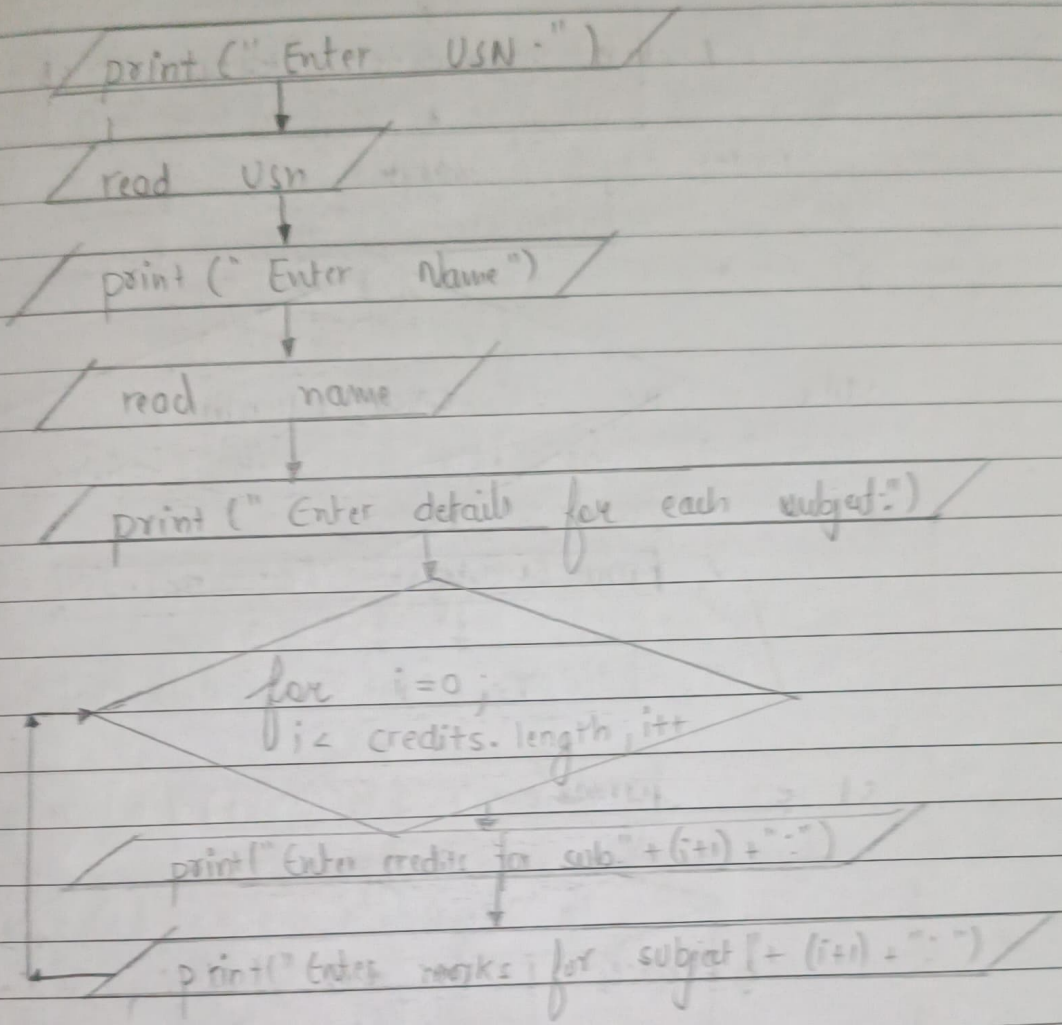 print (" Enter USN ." )
read Usn
print (" Enter Name")
read name
print (" Enter details for each subject:")
for i=0 ;
i< credits. length , i++
print(" Enter credits for sub." + (i+1) + ":")
print(" Enter marks for subject "+ (i+1) + ": ")